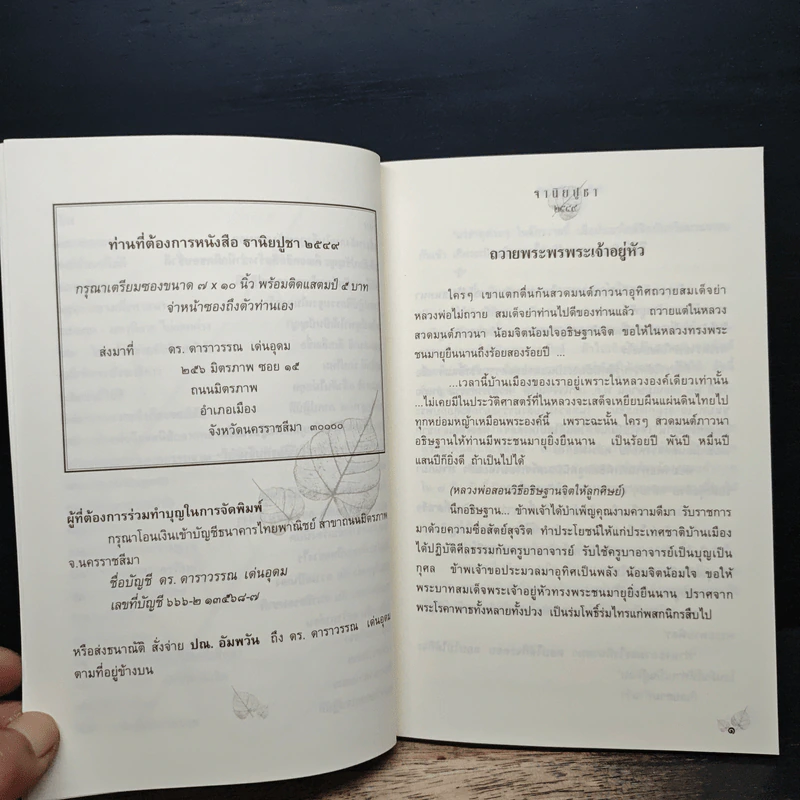 ท่านที่ต้องการหนังสือ ฐานิยปูชา ๒๕๔๙
กรุณาเตรียมซองขนาด ๗ x ๑๐ นิ้ว พร้อมติดแสตมป์ ๕ บาท
จ่าหน้าซองถึงตัวท่านเอง
ส่งมาที่ ดร. ดาราวรรณ เด่นอุดม
๒๕๖ มิตรภาพ ซอย ๑๕
ถนนมิตรภาพ
อำเภอเมือง
จังหวัดนครราชสีมา ๓๐๐๐๐
ผู้ที่ต้องการร่วมทำบุญในการจัดพิมพ์
กรุณาโอนเงินเข้าบัญชีธนาคารไทยพาณิชย์ สาขาถนนมิตรภาพ
จ.นครราชสีมา
ชื่อบัญชี ดร. ดาราวรรณ เด่นอุดม
เลขที่บัญชี ๖๖๖-๒ ๑๓๕๖๘-๗
หรือส่งธนาณัติ สั่งจ่าย ปณ. อัมพวัน ถึง ดร. ดาราวรรณ เด่นอุดม
ตามที่อยู่ข้างบน
ฐานิยปูชา
๒๕๔๙
ถวายพระพรพระเจ้าอยู่หัว
ใครๆ เขาแตกตื่นกันสวดมนต์ภาวนาอุทิศถวายสมเด็จย่า
หลวงพ่อไม่ถวาย สมเด็จย่าท่านไปดีของท่านแล้ว ถวายแต่ในหลวง
สวดมนต์ภาวนา น้อมจิตน้อมใจอธิษฐานจิต ขอให้ในหลวงทรงพระ
ชนมายุยืนนานถึงร้อยสองร้อยปี ...
...เวลานี้บ้านเมืองของเราอยู่เพราะในหลวงองค์เดียวเท่านั้น
...ไม่เคยมีในประวัติศาสตร์ที่ในหลวงจะเสด็จเหยียบผืนแผ่นดินไทยไป
ทุกหย่อมหญ้าเหมือนพระองค์นี้ เพราะฉะนั้น ใครๆ สวดมนต์ภาวนา
อธิษฐานให้ท่านมีพระชนมายุยิ่งยืนนาน เป็นร้อยปี พันปี หมื่นปี
แสนปีก็ยิ่งดี ถ้าเป็นไปได้
(หลวงพ่อสอนวิธีอธิษฐานจิตให้ลูกศิษย์)
นึกอธิษฐาน... ข้าพเจ้าได้บำเพ็ญคุณงามความดีมา รับราชการ
มาด้วยความซื่อสัตย์สุจริต ทำประโยชน์ให้แก่ประเทศชาติบ้านเมือง
ได้ปฏิบัติศีลธรรมกับครูบาอาจารย์ รับใช้ครูบาอาจารย์เป็นบุญเป็น
กุศล ข้าพเจ้าขอประมวลมาอุทิศเป็นพลัง น้อมจิตน้อมใจ ขอให้
พระบาทสมเด็จพระเจ้าอยู่หัวทรงพระชนมายุยิ่งยืนนาน ปราศจาก
พระโรคาพาธทั้งหลายทั้งปวง เป็นร่มโพธิ์ร่มไทรแก่พสกนิกรสืบไป
๑